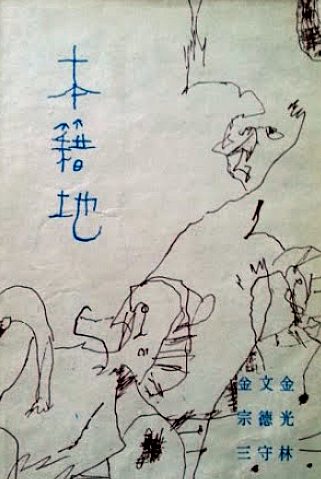 本籍地
金光林
文德守
金宗三